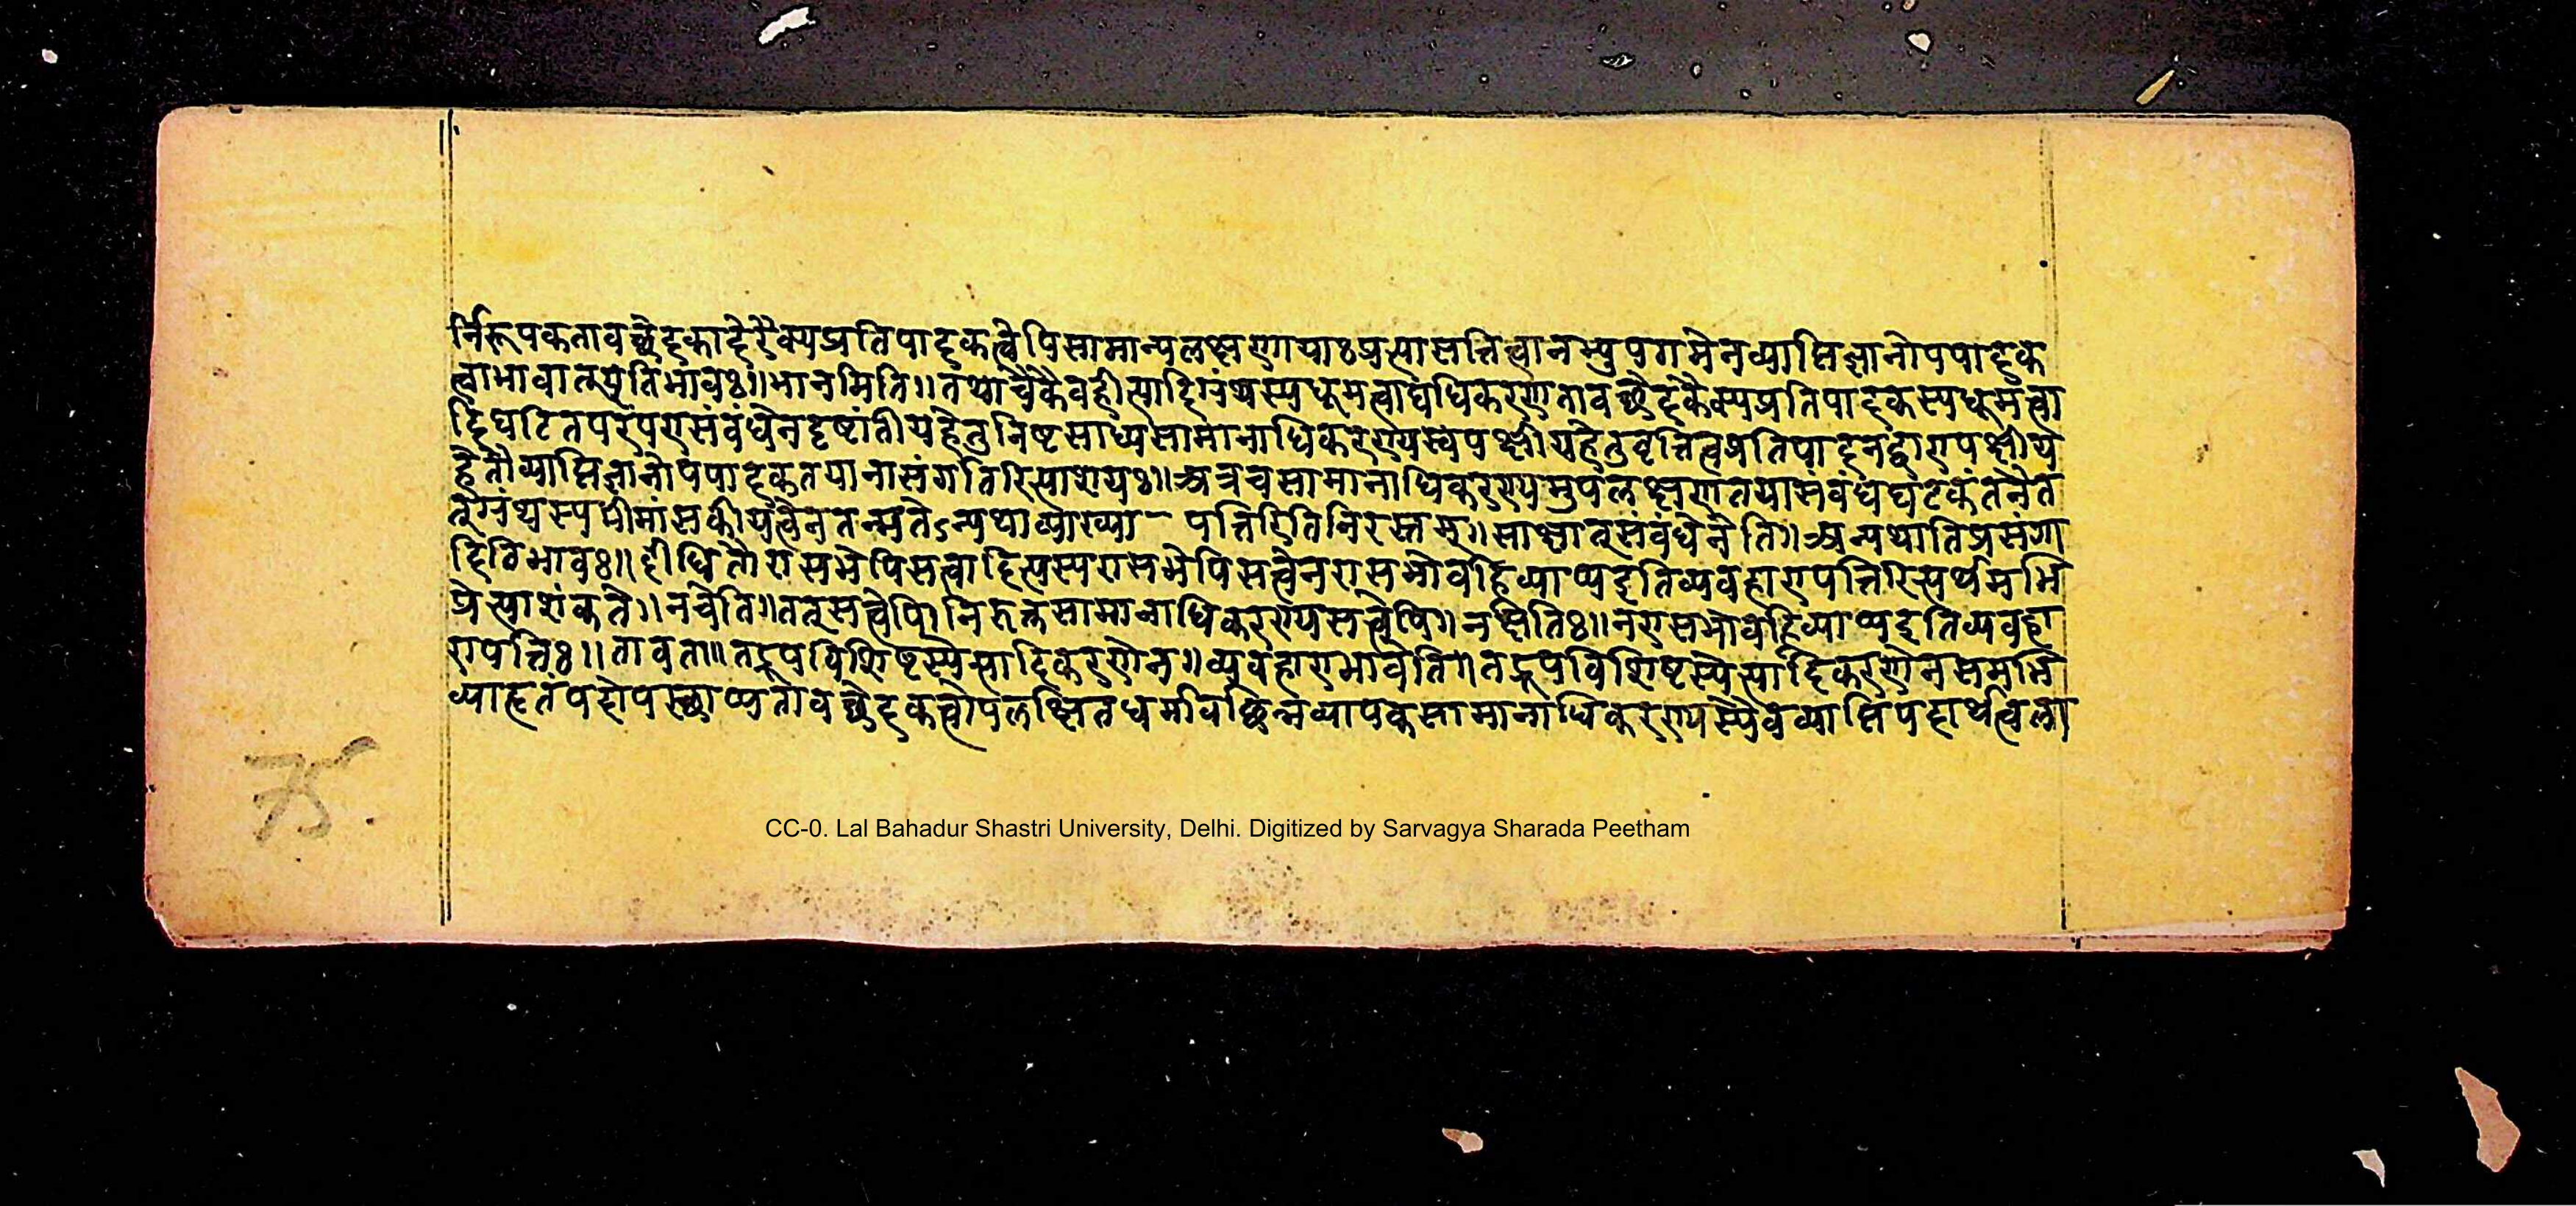 र्निरूपकतावच्छेदकादेरैक्यप्रतिपादकत्वेपिसामान्यलक्षणायाःप्रत्यासत्तित्वानभ्युपगमेनव्याप्तिज्ञानोपपादक
त्वाभावात्प्रेतिभावः॥भानमिति॥तथाचैकैवहीत्यादिग्रंथस्यधूमत्वाद्यधिकरणतावच्छेदकैक्यप्रतिपादकस्यधूमत्वा
दिघटितपरंपरासंबंधेनदृष्टांतीयहेतुनिष्टसाध्यसामानाधिकरण्यस्यपक्षीयहेतुवृत्तित्वप्रतिपादनद्वारापक्षीय
हेतौव्याप्तिज्ञानोपपादकतयानासंगतिरित्याशयः॥अत्रचसामानाधिकरण्यमुपलक्षणतयासंबंधघटकंतेनैत
त्ग्रंथस्यमीमांसकीयत्वेनतन्मतेऽन्यथाव्याख्या- पत्तिरितिनिरस्तम्॥साक्षात्संबंधेनेति॥अन्यथातिप्रसंगा
दितिभावः॥दीधितौरासभेपिसत्वादित्यस्यरासभेपिसत्वेनरासभोवह्निव्याप्यइतिव्यवहारापत्तिरित्यर्थमभि
प्रेत्याशंकते॥नचेति॥तत्सत्वेपि।निरुक्तसामानाधिकरण्यसत्वेपि॥नक्षतिः॥नरासभोवह्निव्याप्यइतिव्यवहा
रापत्तिः॥तावता॥तद्रूपविशिष्टस्येत्यादिकरणेन॥व्यवहाराभावेति॥तद्रूपविशिष्टस्येत्यादिकरणेनसमभि
व्याहृतंपदोपस्थाप्यतावच्छेदकत्वोपलक्षितधर्मावच्छिन्नव्यापकसामानाधिकरण्यस्यैवव्याप्तिपदार्थत्वला
75.
CC-0. Lal Bahadur Shastri University, Delhi. Digitized by Sarvagya Sharada Peetham